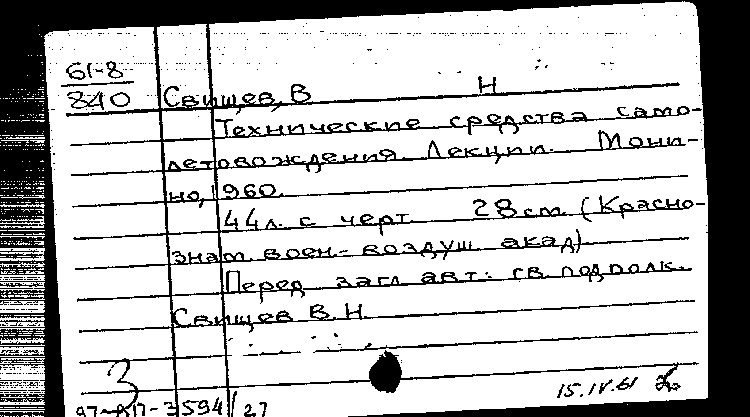 61-8
840 Свищев, В Н
Технические средства само-
летовождения. Лекции. Мони-
но, 1960.
44л. с черт. 28см. (Красно-
знам. воен.-воздуш. акад)
Перед загл. авт.: гв. подполк.
Свищев В. Н.
3
15.IV.61
97-АП-3594/27